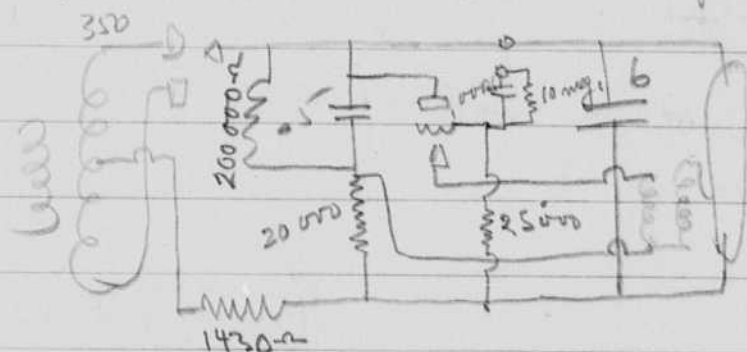 350
200 000 Ω
.5
10 meg.
6
20 000
25000
1430 Ω